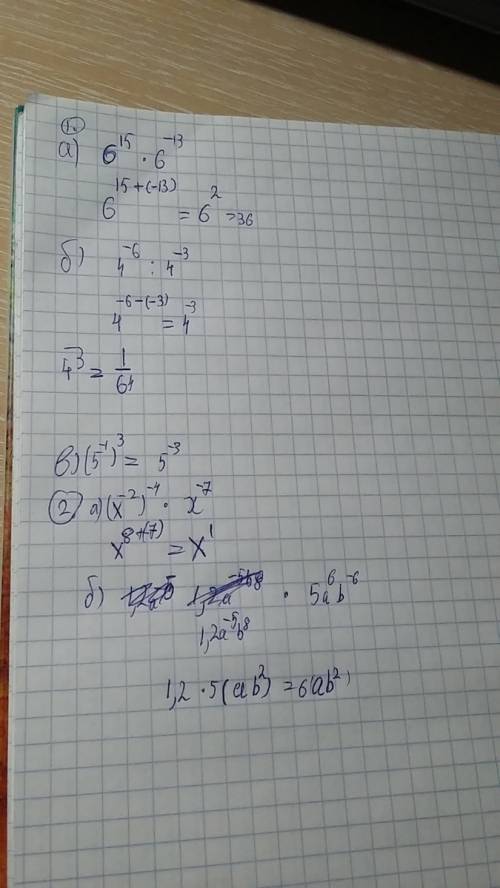 1.
а) 6^15 · 6^-13
6^15+(-13) = 6^2 = 36
б) 4^-6 : 4^-3
4^-6-(-3) = 4^-3
4^-3 = 1/64
в) (5^-1)^3 = 5^-3
2 а) (x^-2)^-4 · x^-7
x^8+(-7) = x^1
б) 1,2a^-5b^8 · 5a^6b^-6
1,2 · 5(ab^2) = 6ab^2